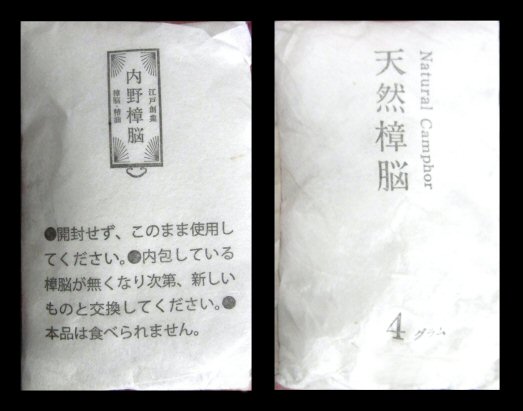 江戸創業
内野樟脳
樟脳・精油
●開封せず、このまま使用し
てください。●内包している
樟脳が無くなり次第、新しい
ものと交換してください。●
本品は食べられません。
Natural Camphor
天然樟脳
4グラム